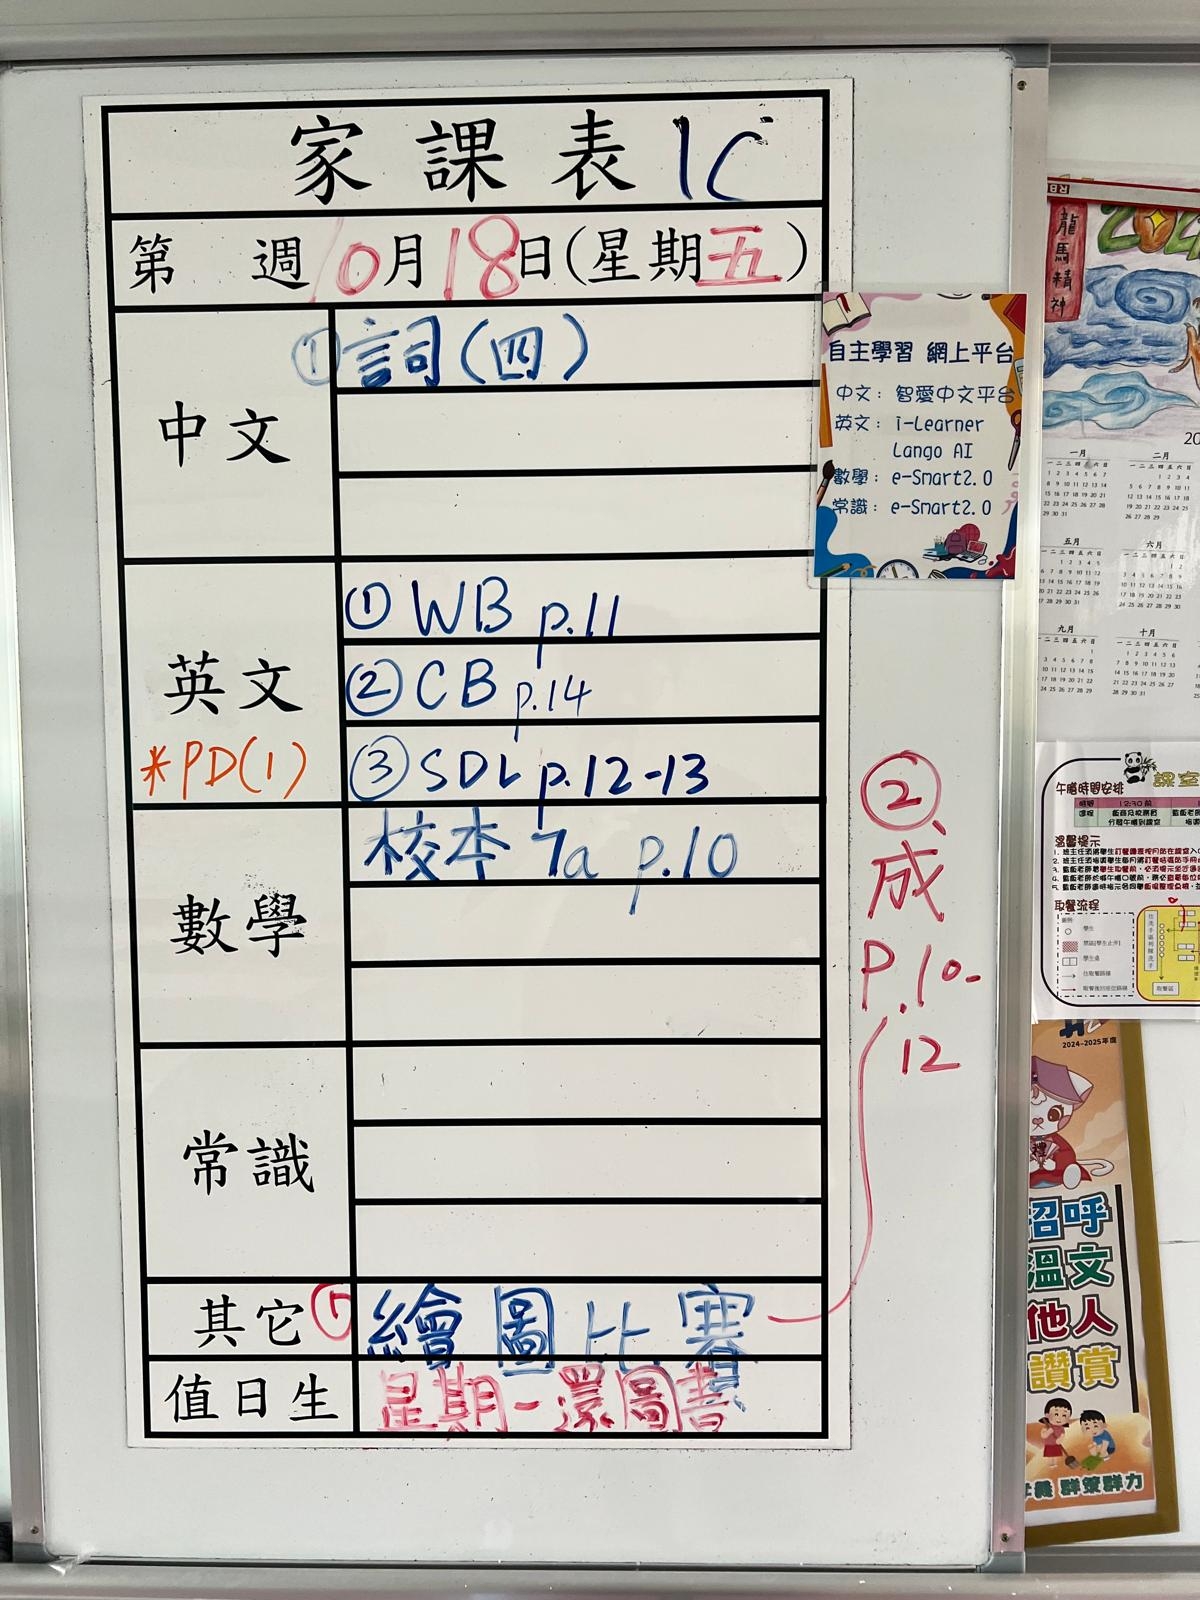 家課表 1C
第 週 10月18日(星期五)
中文
① 詞(四)
英文
*PD(1)
① WB p.11
② CB p.14
③ SDL p.12-13
數學
校本 7a p.10
常識
其它
繪圖比賽
值日生
星期一還圖書
②、成
P.10-
12
自主學習 網上平台
中文： 智愛中文平台
英文： i-Learner
Lango AI
數學： e-Smart2.0
常識： e-Smart2.0
龍馬精神
一月
二月
五月
六月
九月
十月
午膳時間安排
課室
溫馨提示
取餐流程
學生
學生桌
取餐區
2024-2025年度
招呼
溫文
他人
讚賞
群策群力